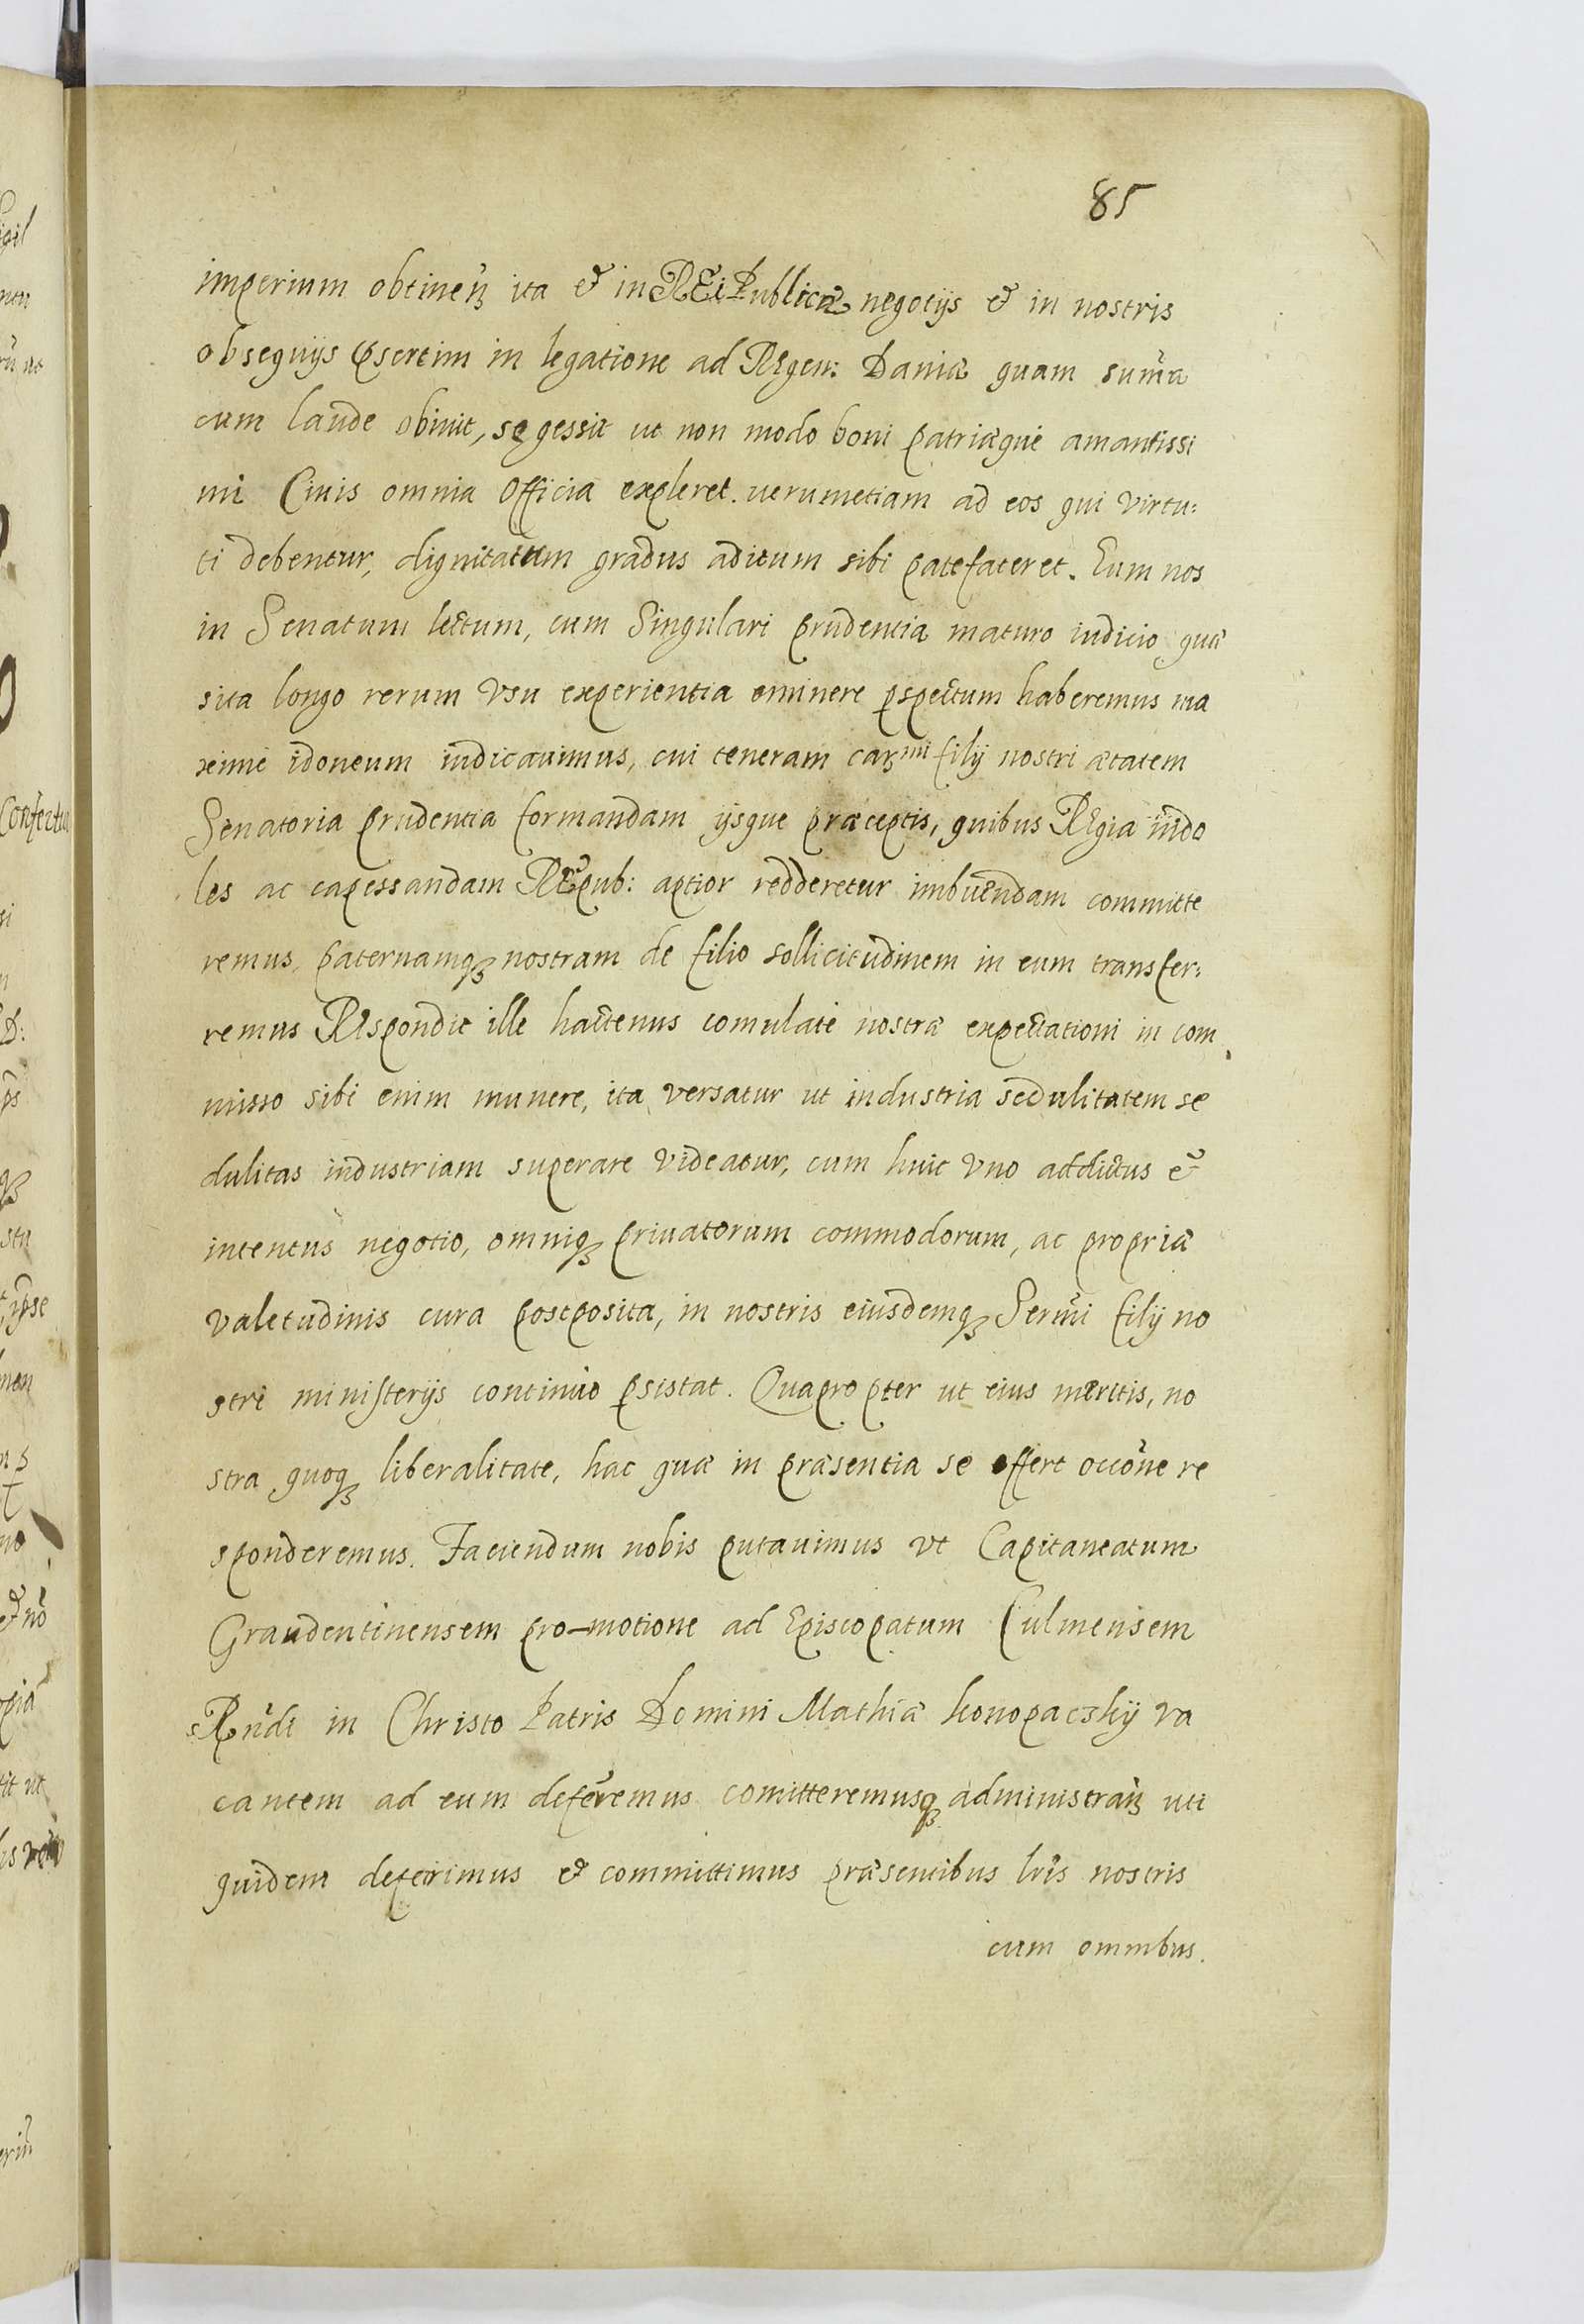 85
imperium obtineñ ita et in REi Publicæ negotijs et in nostris
obsequijs p̃sertim in legatione ad REgem: Daniæ quam sum̃a
cum laude obiuit, se gessit ut non modo boni patriæque amantissi
mi Ciuis omnia officia expleret. uerumetiam ad eos qui virtu:
ti debentur, dignitatum gradus aditum sibi patefaceret. Eum nos
in Senatum lectum, cum Singulari prudentia maturo iudicio, quæ
sita longo rerum Vsu experientia eminere p̱spectum haberemus ma
xime idoneum iudicauimus, cui teneram carmi filij nostri ætatem
Senatoria prudentia formandam ijsque præceptis, quibus REgia indo
les ac capessandam REpub: aptior redderetur imbuendam committe
remus, paternamq₃ nostram de filio sollicitudinem in eum transfer:
remus REspondit ille hactenus comulate nostræ expectationi in com
misso sibi enim munere, ita versatur ut industria sedulitatem se
dulitas industriam superare videatur, cum huic vno addictus et
intentus negotio, omniq₃ priuatorum commodorum, ac propriæ
valetudinis cura postposita, in nostris eiusdemq₃ Serm̃i filij no
stri ministerijs continuo p̱sistat. Quapropter ut eius meritis, no
stra quoq₃ liberalitate, hac quæ in præsentia se offert occõne re
sponderemus. Faciendum nobis putauimus vt Capitaneatum
Graudentinensem pro-motione ad Episcopatum Culmensem
Rñdi in Christo Patris Domini Mathiæ konopaczkij va
cantem ad eum deferemus comitteremusq₃ administrañ uti
quidem deferimus et committimus præsentibus lr̃is nostris
cum omnibus.